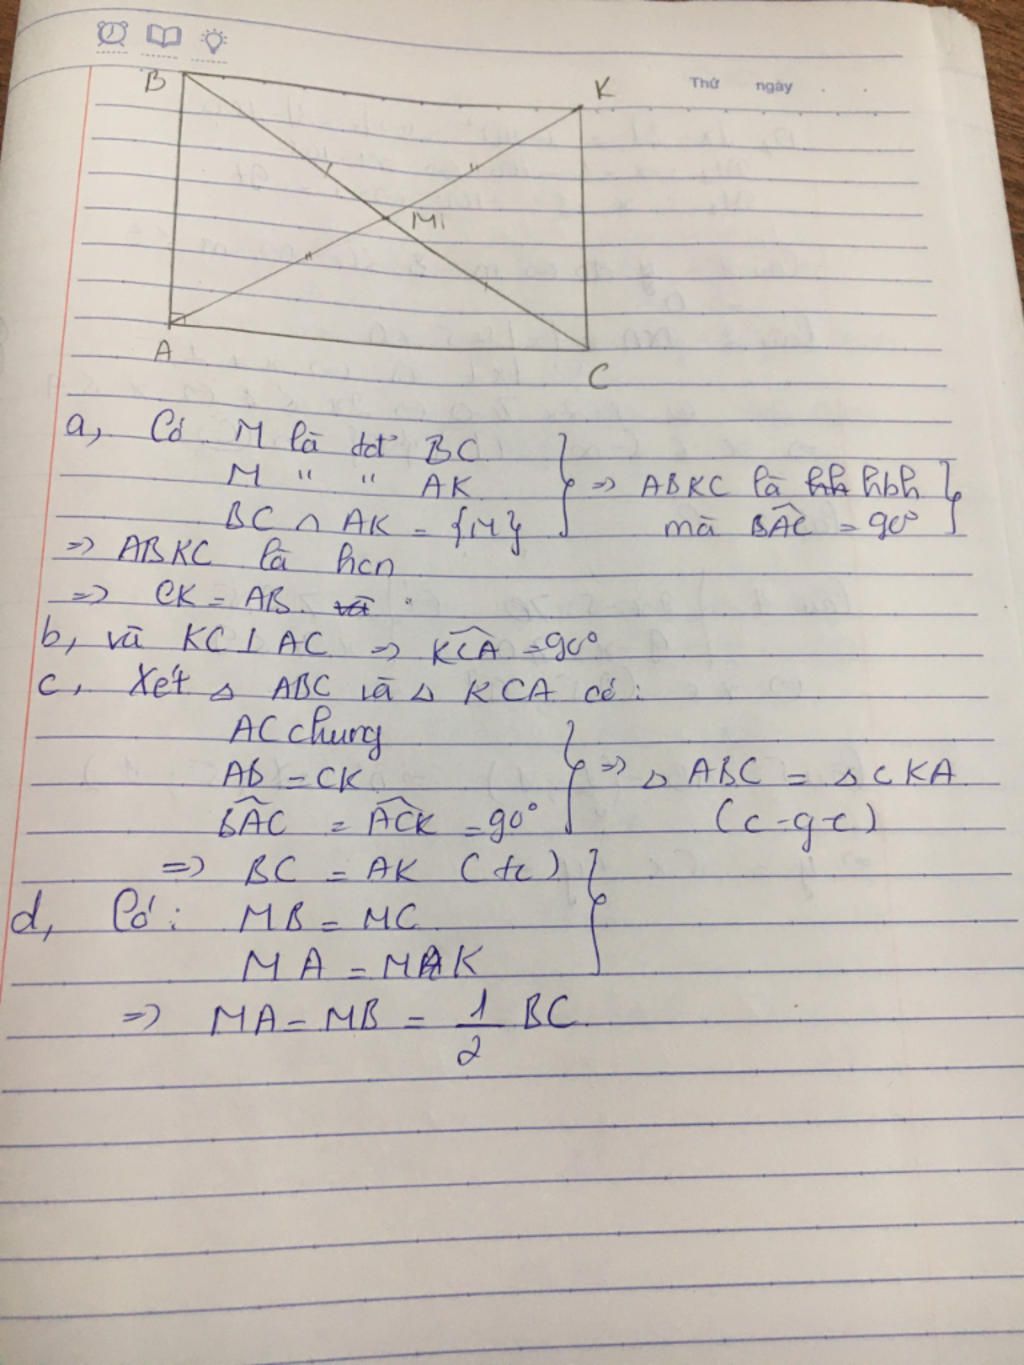 Thứ ngày
B
K
M
A
C
a, Có M là tđ BC
M " " AK => ABKC là hbh
BC ∩ AK = {M} mà BAC = 90°
=> ABKC là hcn
=> CK = AB.
b, và KC ⊥ AC => KCA = 90°
c, Xét △ ABC và △ KCA có:
AC chung
AB = CK => △ ABC = △ CKA
BAC = ACK = 90° (c-g-c)
=> BC = AK (tc)
d, Có: MB = MC
MA = MK
=> MA = MB = 1/2 BC